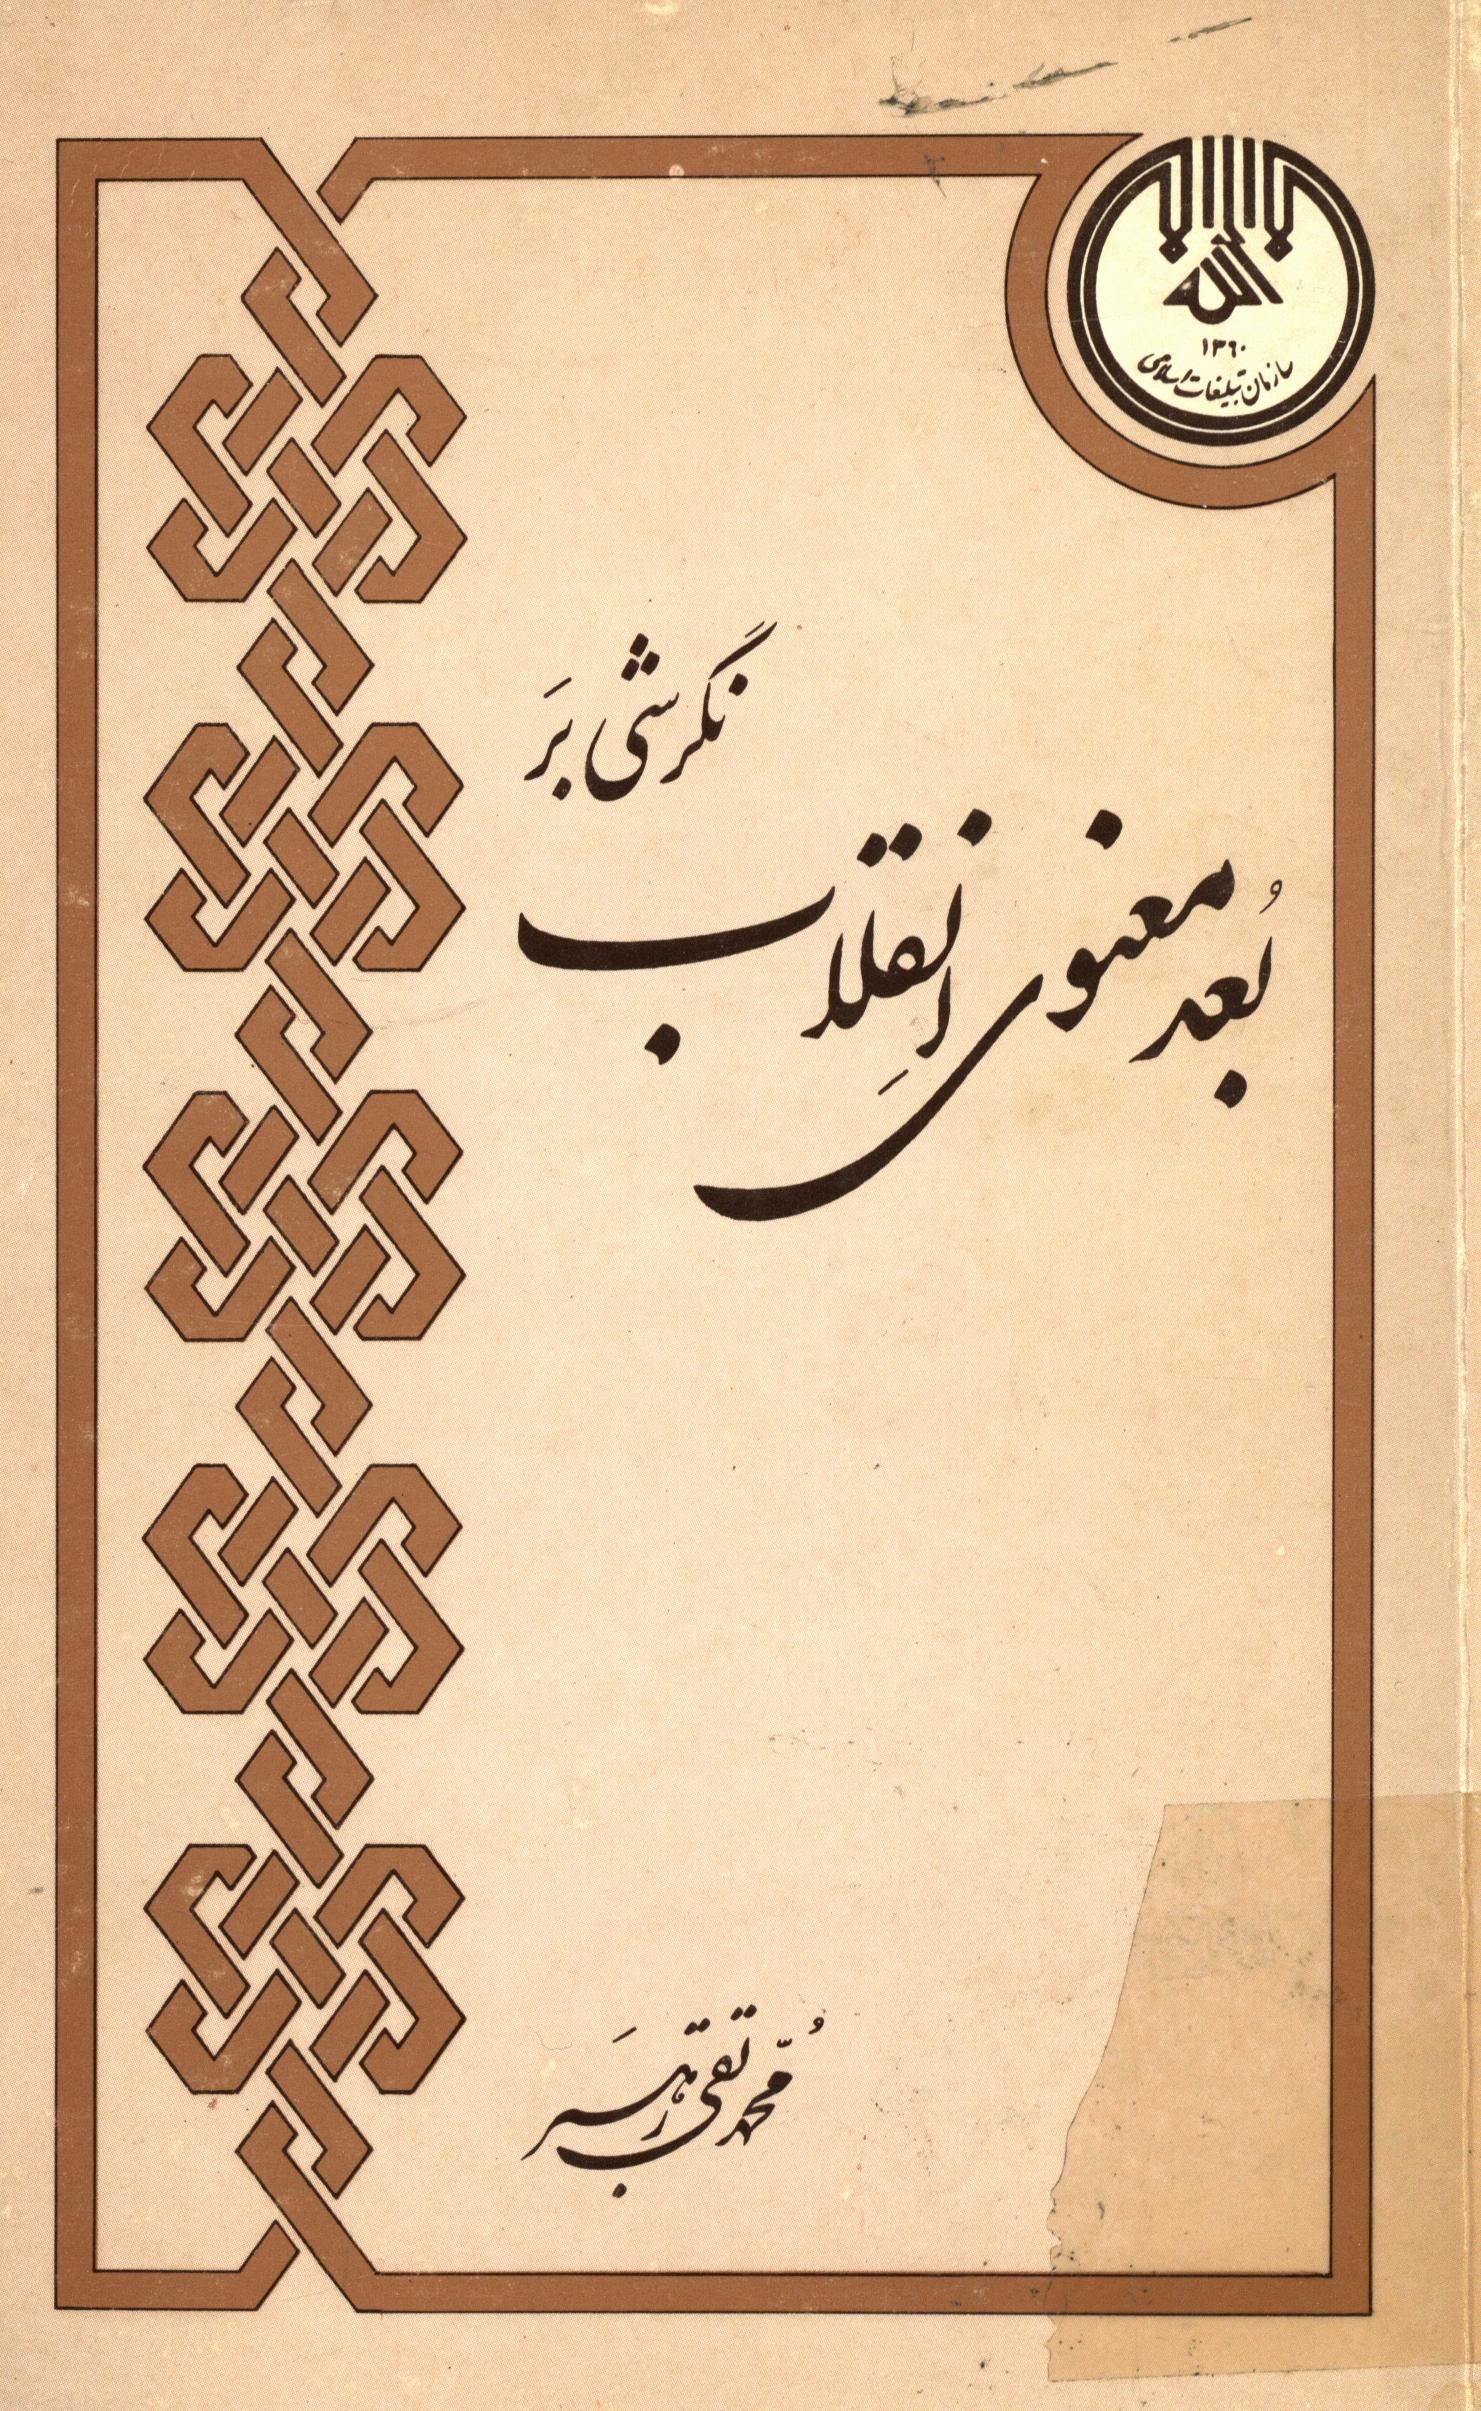 الله
۱۳۶۰
سازمان تبلیغات اسلامی
نگرشی بَر
بُعد معنوی اِنقلاب
مُحمّد تقی رَهبَر